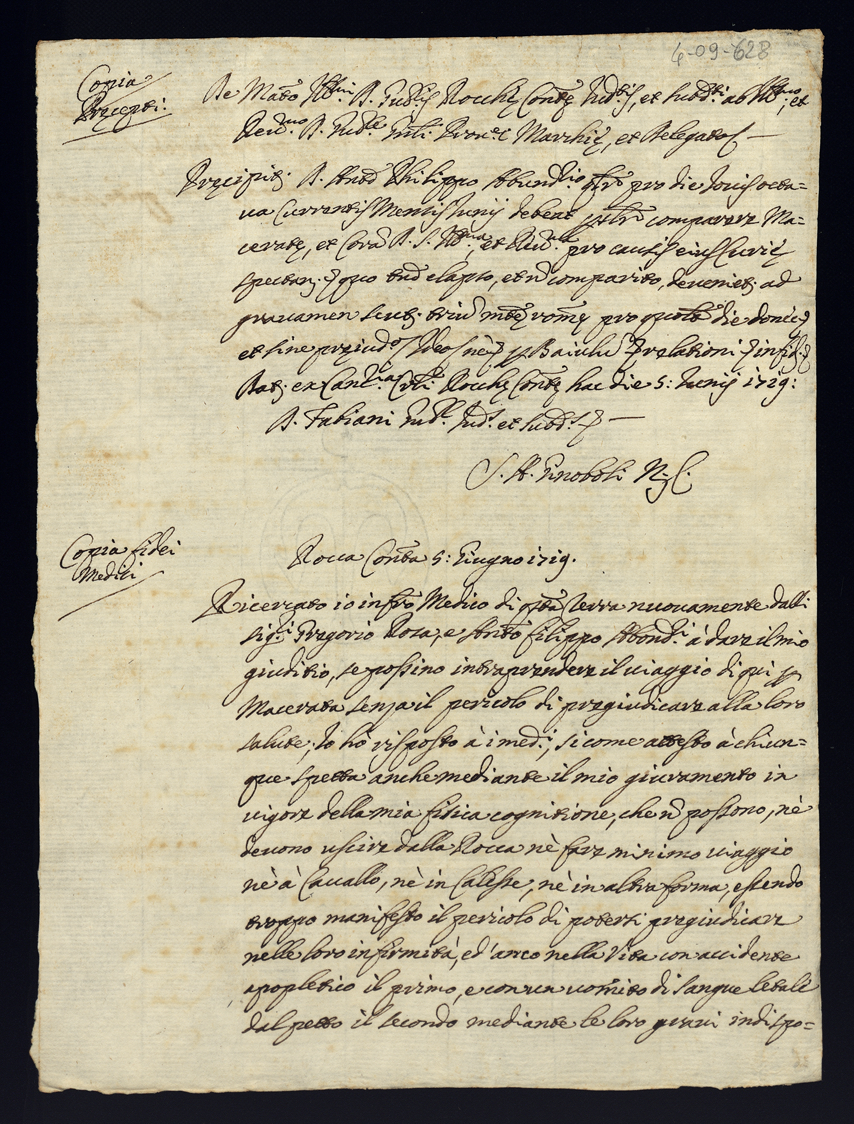 4-09-628
Copia
Præcepti:
De Mãto Ill.mi D. Jud.is Rocchæ Contræ Jud.is, et Subd.ti ab Ill.mo, et
Rev.mo D. Marchiæ, et Delegato
Præcipit. D. Ant.o Philippo Abund.io pro die Jovis octa=
va Currentis Mensis Junij debeat comparere Ma=
ceratæ, et Corã D. S. Ill.ma, et Rev.ma pro causis eius Curiæ
spectan. quo elapso, et ñ comparito, deveniet. ad
gravamen scut. triũ mtæ romæ pro die donec
et sine præiud. Baiulũ relationi
Dat. ex Canc.ria Rocchæ Contræ hac die 5: Junij 1719:
D. Fabiani Jud. et subd.
S. A. Ginoboli N. C.
Copia fidei
Medici
Rocca Contra 5: Giugno 1719.
Ricercato io infr̃o Medico di q̃sta Terra nuovamente dalli
Sig.i Gregorio Rosa, e Ant.o Filippo Abond.i à dare il mio
giuditio, se possino intraprendere il viaggio di qui p
Macerata senza il pericolo di pregiudicare alla loro
salute; Io hò risposto à i med.i, si come attesto à chiun=
que spetta anche mediante il mio giuramento in
vigore della mia fisica cognitione, che ñ possono, nè
devono uscire dalla Rocca nè fare minimo viaggio
nè à Cavallo, nè in Calesse, nè in altra forma, essendo
troppo manifesto il pericolo di potersi pregiudicare
nelle loro infirmità, ed' anco nella Vita con accidente
apopletico il primo, e con un vomito di sangue letale
dal petto il secondo mediante le loro gravi indispo=